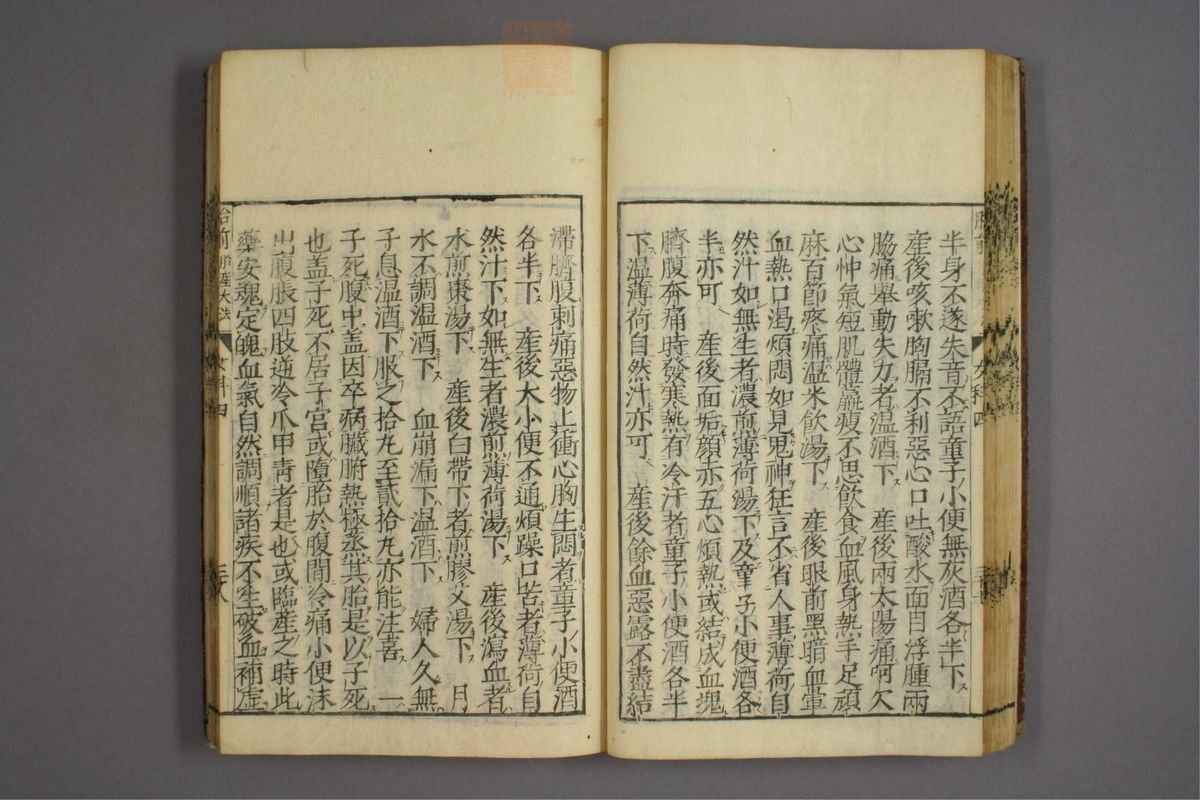 半身不遂失音不語童子小便無灰酒各半下
産後咳嗽胸膈不利惡心口吐酸水面目浮腫兩
脇痛舉動失力者温酒下　産後兩太陽痛呵欠
心忡氣短肌體羸瘦不思飲食血風身熱手足頑
麻百節疼痛温米飲湯下　産後眼前黑暗血暈
血熱口渴煩悶如見鬼神狂言不省人事薄荷自
然汁如無生者濃煎薄荷湯下及童子小便酒各
半亦可　産後面垢顔赤五心煩熱或結成血塊
臍腹奔痛時發寒熱有冷汗者童子小便酒各半
下温薄荷自然汁亦可　産後餘血惡露不盡結
滯臍腹刺痛惡物上衝心胸生悶者童子小便酒
各半下　産後大小便不通煩躁口苦者薄荷自
然汁下如無生者濃煎薄荷湯下　産後瀉血者
水煎棗湯下　産後白帶下者煎膠艾湯下　月
水不調温酒下　血崩漏下温酒下　婦人久無
子息温酒下服之拾丸至貳拾丸亦能注喜　一
子死腹中盖因卒病臟腑熱極蒸其胎是以子死
也盖子死不居子宮或墮胎於腹間冷痛小便沫
出腹脹四肢逆冷爪甲青者是也或臨産之時此
藥安魂定魄血氣自然調順諸疾不生破血補虚
胎前 産大法
女科四
三十八